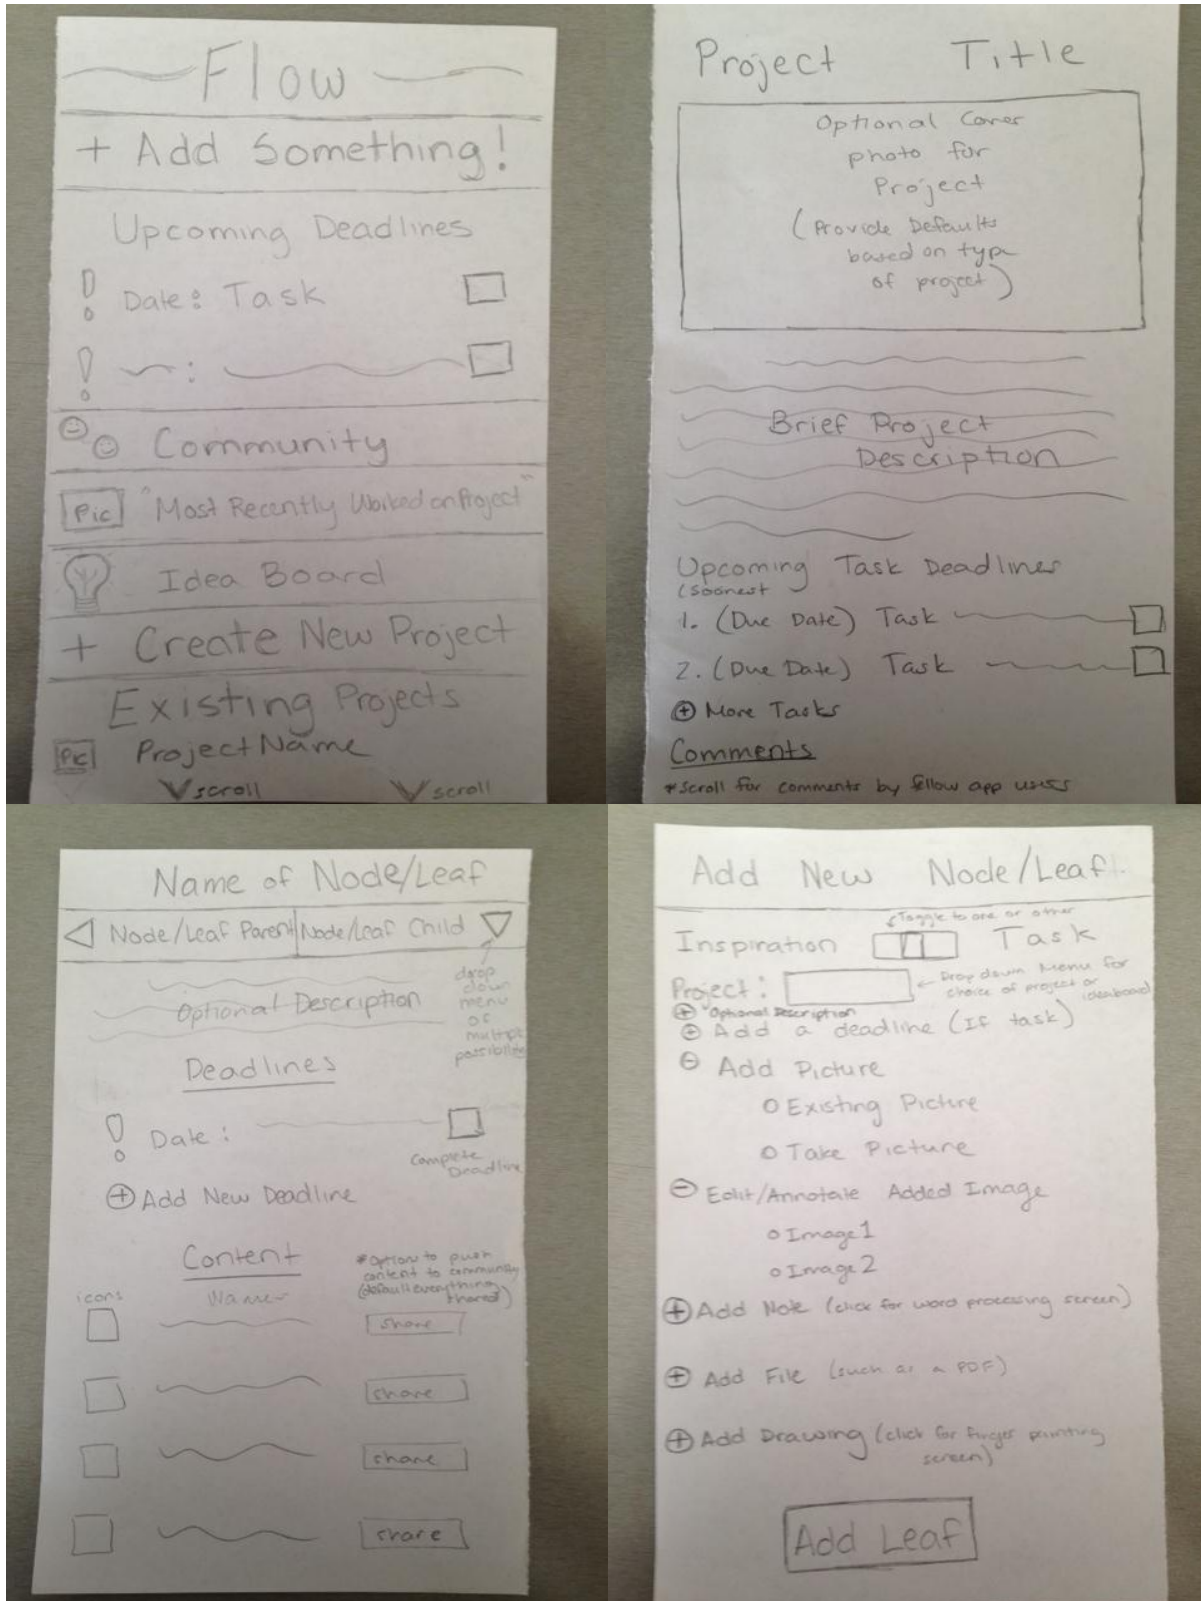 Flow
+ Add Something!
Upcoming Deadlines
! Date: Task
! :
Community
Pic "Most Recently Worked on Project"
Idea Board
+ Create New Project
Existing Projects
Pic Project Name
scroll scroll
Project Title
Optional Cover
photo for
Project
(Provide Defaults
based on type
of project)
Brief Project
Description
Upcoming Task Deadlines
(soonest
1. (Due Date) Task
2. (Due Date) Task
+ More Tasks
Comments
*Scroll for comments by fellow app users
Name of Node/Leaf
Node/Leaf Parent Node/Leaf Child
drop
down
menu
of
multiple
possibilities
Optional Description
Deadlines
! Date:
Complete
Deadline
+ Add New Deadline
Content
*Option to push
content to community
(default everything
shared)
icons Names
share
share
share
share
Add New Node/Leaf
Toggle to one or other
Inspiration Task
Project:
Drop down Menu for
choice of project or
ideaboard
+ *Optional Description
+ Add a deadline (If task)
- Add Picture
o Existing Picture
o Take Picture
- Edit/Annotate Added Image
o Image 1
o Image 2
+ Add Note (click for word processing screen)
+ Add File (such as a PDF)
+ Add Drawing (click for finger painting
screen)
Add Leaf